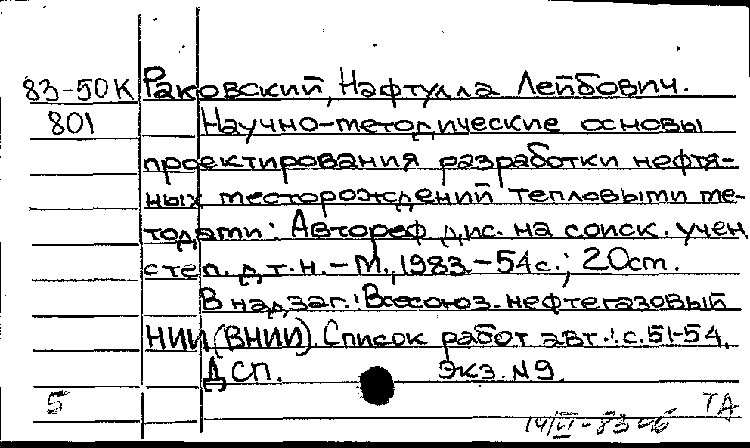 83-50К Раковский, Нафтулла Лейбович.
801 Научно-методические основы
проектирования разработки нефтя-
ных месторождений тепловыми ме-
тодами: Автореф дис. на соиск. учен
степ. д.т.н. - М., 1983. - 54с.; 20см.
В надзаг.: Всесоюз. нефтегазовый
НИИ (ВНИИ). Список работ авт.: с.51-54.
ДСП. Экз. №9.
5 ТД